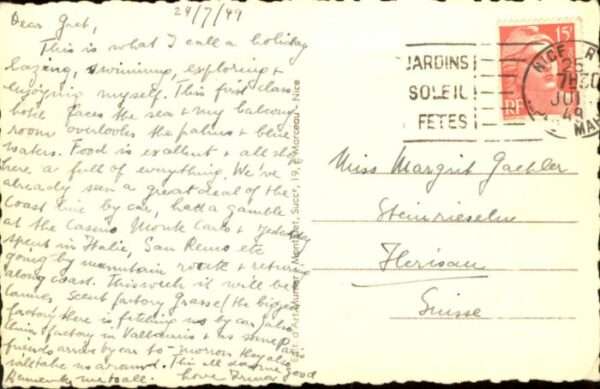 29/7/49
Dear Gret,
This is what I call a holiday
lazing, swimming, exploring &
enjoying myself. This first class
hotel faces the sea & my balcony
room overlooks the palms & blue
waters. Food is excellent & all
here is full of everything. We've
already seen a great deal of the
Coast line by car, had a gamble
at the Casino Monte Carlo & yesterday
spent in Italie, San Remo etc
going by mountain route & returning
along coast. This week it will be
Cannes, Scent factory Grasse (the biggest
factory there is fetching us by car) also
factory in Vallauris & as some Paris
friends arrive by car to-morrow they also
will take us around. This all does me good
Remember me to all. Love
JARDINS
SOLEIL
FETES
15F
RF
NICE R
25
7H30
JUI
49
MAR
Miss Margrit Gaehler
Steinrieseln
Herisau
Suisse
Marceau - Nice